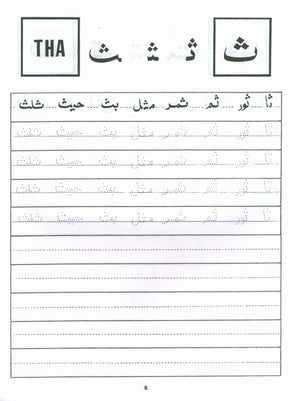 ث ثـ ـثـ ـث THA
ثا ثور ثم ثمر مثل بث حيث ثلث
ثا ثور ثم ثمر مثل بث حيث ثلث
ثا ثور ثم ثمر مثل بث حيث ثلث
ثا ثور ثم ثمر مثل بث حيث ثلث
ثا ثور ثم ثمر مثل بث حيث ثلث
6